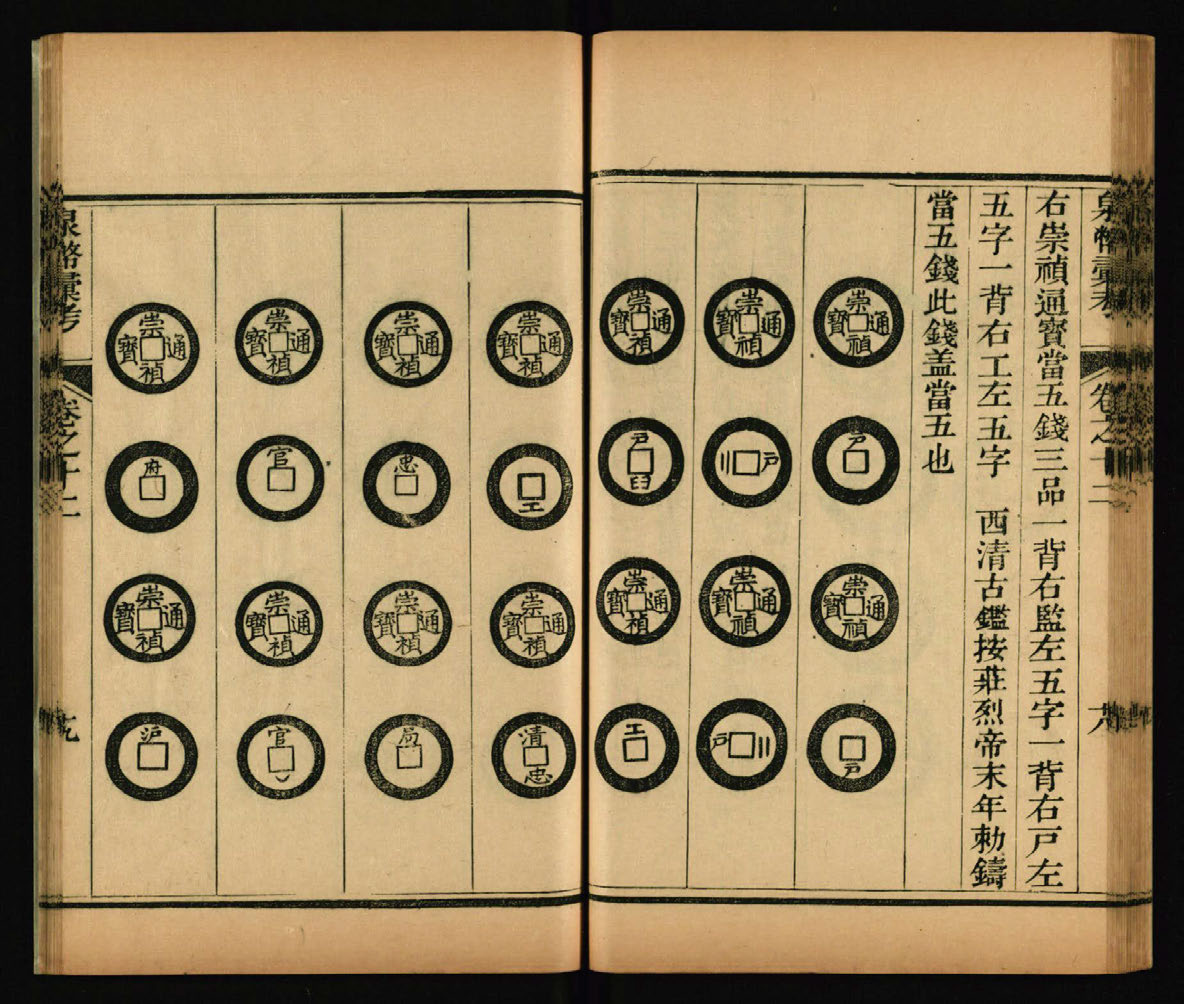 泉幣彙考
卷之十二
十八
右崇禎通寶當五錢三品一背右監左五字一背右戸左
五字一背右工左五字 西清古鑑按莊烈帝末年勅鑄
當五錢此錢盖當五也
崇禎通寶
戸
崇禎通寶
戸
崇禎通寶
戸
崇禎通寶
戸
崇禎通寶
戸臼
崇禎通寶
工
崇禎通寶
工
崇禎通寶
清忠
崇禎通寶
忠
崇禎通寶
局
崇禎通寶
官
崇禎通寶
官
崇禎通寶
府
崇禎通寶
沪
泉幣彙考
卷之十二
十九